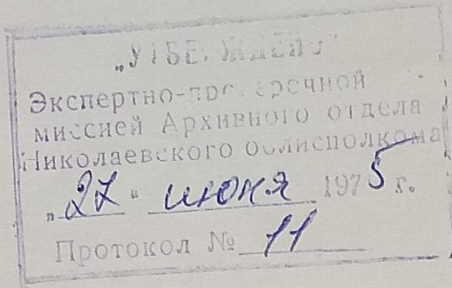 „УТВЕРЖДЕНО"
Экспертно-проверочной
миссией Архивного отдела
Николаевского облисполкома
„27" июня 1975 г.
Протокол № 11